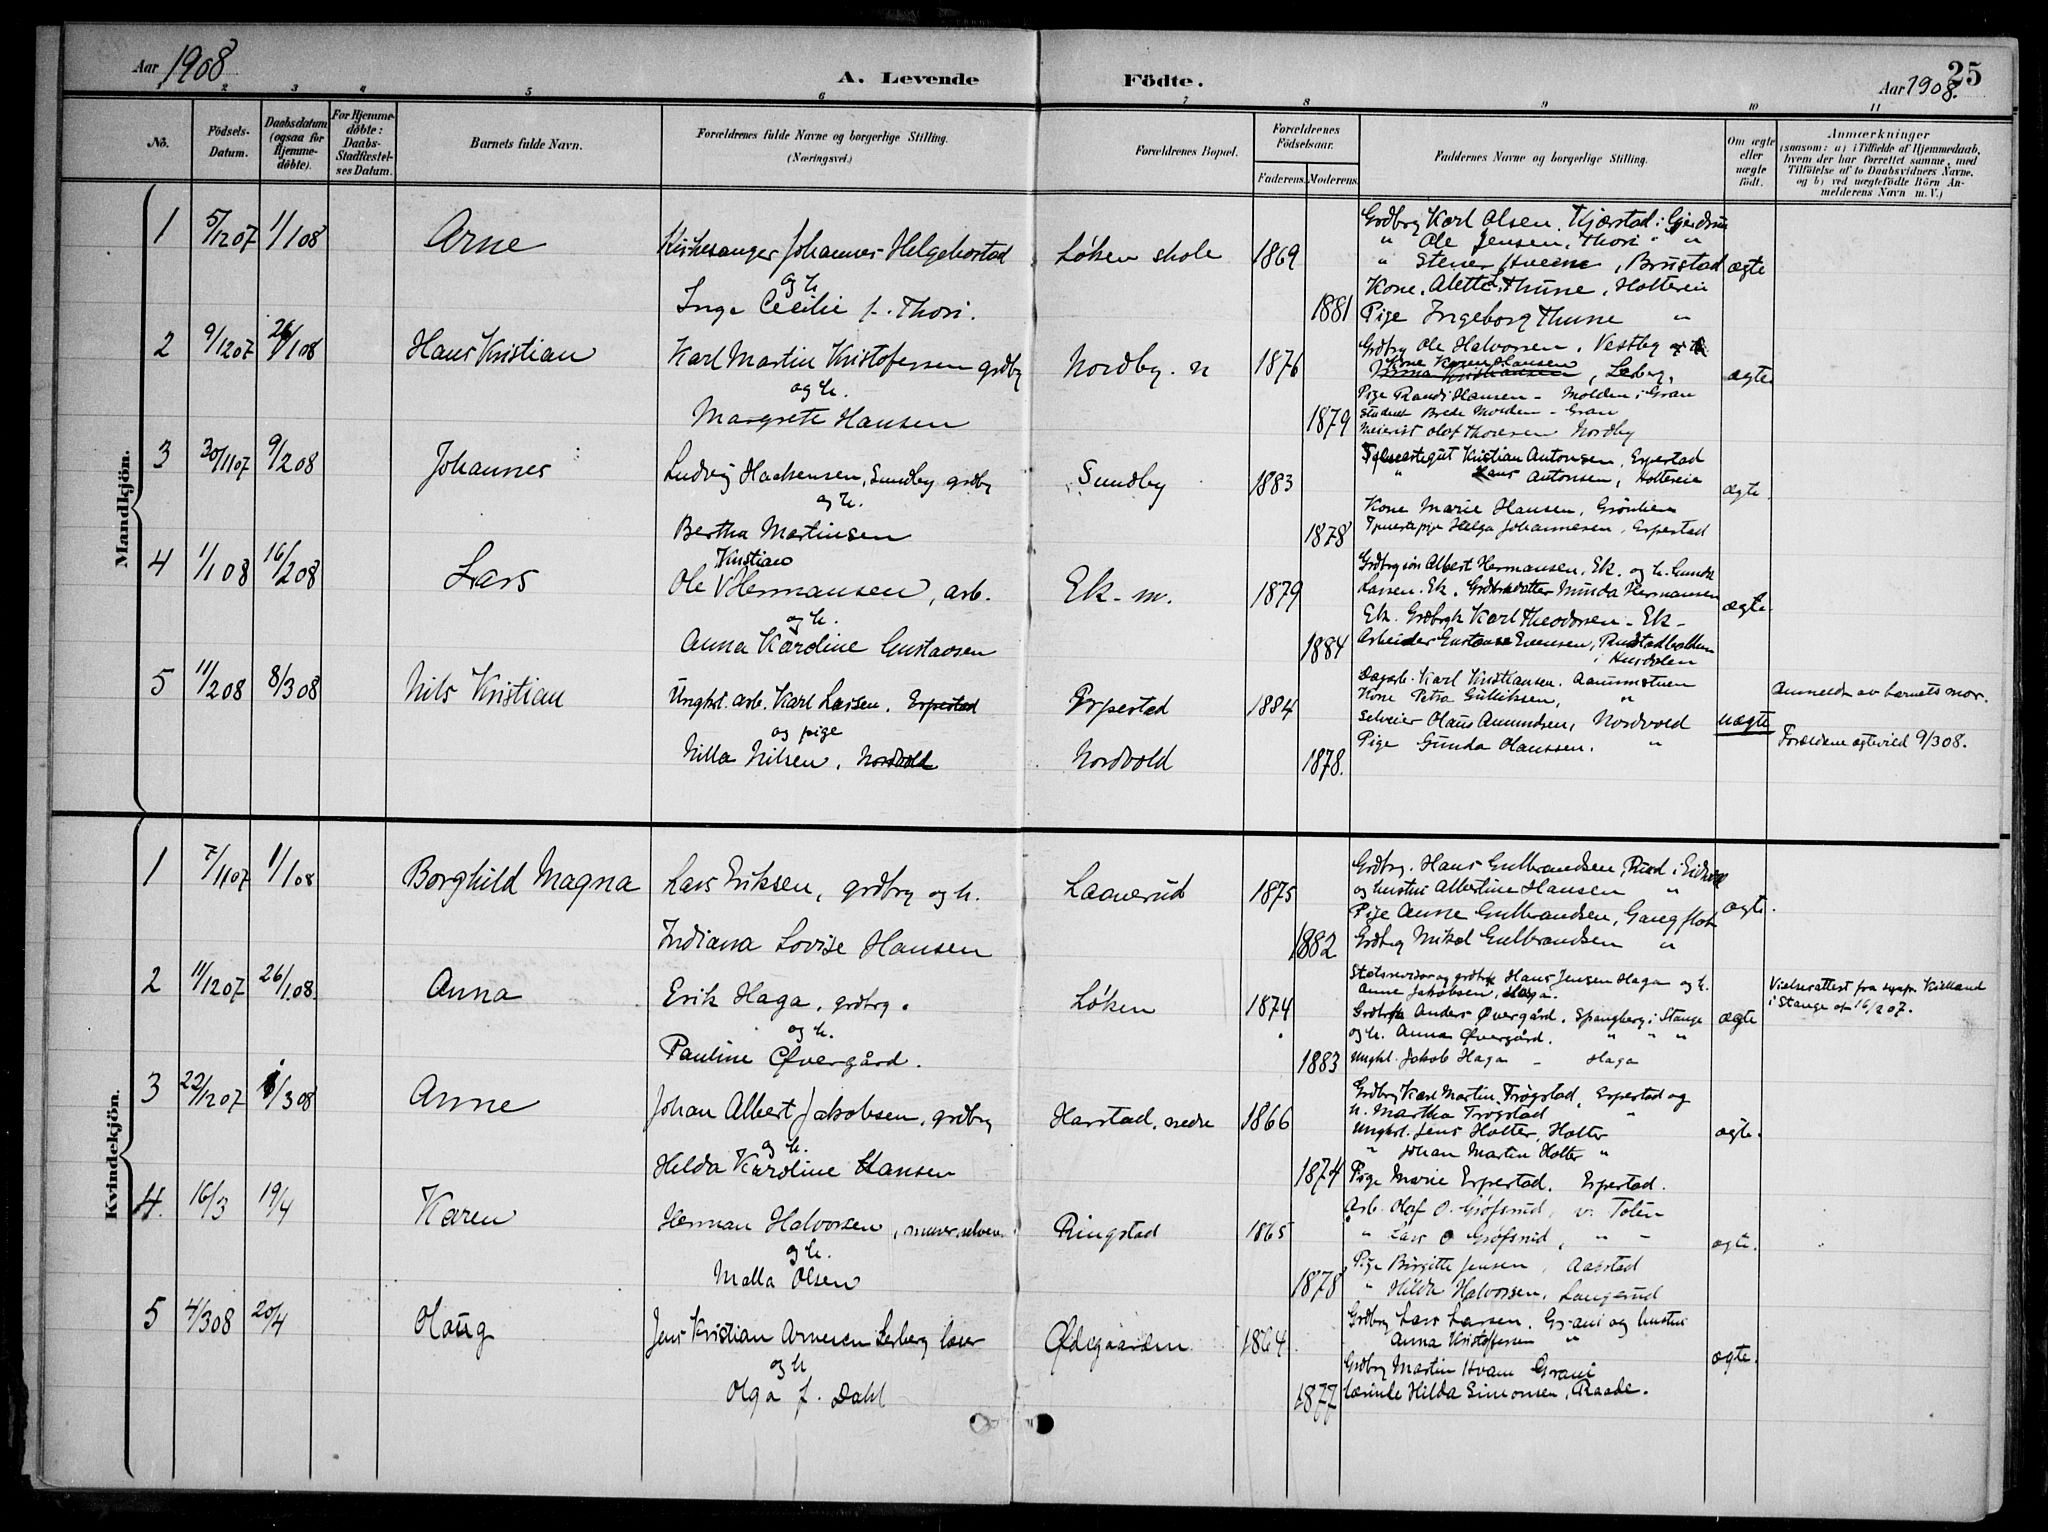 Aar 1908
A. Levende Födte.
Aar 1908. 25
1 2 3 4 5 6 7 8 9 10 11
No.
Födsels-Datum.
Daabsdatum (ogsaa for Hjemmedöbte).
For Hjemmedöbte: Daabs-Stadfæstelses Datum.
Barnets fulde Navn.
Forældrenes fulde Navne og borgerlige Stilling. (Næringsvei.)
Forældrenes Bopæl.
Forældrenes Födselsaar.
Faderens. Moderens.
Faddernes Navne og borgerlige Stilling.
Om ægte eller uægte födt.
Anmærkninger
(saasom: a) i Tilfælde af Hjemmedaab, hvem der har forrettet samme, med Tilföielse af to Daabsvidners Navne, og b) ved uægtefödte Börn Anmelderens Navn m. V.)
Mandkjön.
1 5/12 07 1/1 08 Arne
Kirkesanger Johannes Helgebostad
og h.
Inga Cecilie f. Thori.
Løken skole 1869 1881
Grdbrg Karl Olsen, Kjærstad i Gjerdrum
" Ole Jensen, Thori " "
" Stener Hveem, Brustad
Kone, Alette Thune, Holtereie
Pige Ingeborg Thune "
ægte
2 9/12 07 26/1 08 Hans Kristian
Karl Martin Kristofersen grdbr
og h.
Margrete Hansen
Nordby. n 1876 1879
Grdbrg Ole Halvorsen, Vestby
Kone Karen Hansen
, Lesberg,
Pige Randi Hansen - Molden i Gran
Student Brede Molden - Gran
Meierist Olaf Thoresen Nordby
ægte
3 30/11 07 9/2 08 Johannes
Ludvig Haakensen, Sundby grdbr
og h.
Bertha Martinsen
Sundby 1883 1878
Tjenestegut Kristian Antonsen, Erpestad
" Hans Antonsen, Holtereie
Kone Marie Hansen, Grønlien
Tjenestepige Helga Johannesen, Erpestad
ægte.
4 1/1 08 16/2 08 Lars
Kristian
Ole V Hermansen, arb.
og h.
Anna Karoline Gustavsen
Ek. m. 1879 1884
Grdbrgsøn Albert Hermansen, Ek. og h. Gunda
Larsen. Ek. Grdbrdatter Minda Hermansen
Ek. Grdbrgk Karl Theodorsen - Ek -
Arbeider Gustav Evensen,
i Hurdalen
ægte
5 11/2 08 8/3 08 Nils Kristian
Ungkl. arb. Karl Larsen. Erpestad
og pige
Nilla Nilsen, Nordvold
Erpestad
Nordvold
1884 1878.
Dagarb. Karl Kristiansen. Aamotstuen
Kone Petra Gulliksen, "
Selveier Olaus Amundsen, Nordvold
Pige Gunda Olaussen. "
uægte
Anmeldt av barnets mor.
Forældrene egteviet 9/3 08.
Kvindekjön.
1 7/11 07 1/1 08 Borghild Magna
Lars Eriksen, grdbrg og h.
Indiana Lovise Hansen
Laanerud 1875 1882
Grdbrg. Hans Gulbrandsen, Ruud i Eidsvold
og hustru Albertine Hansen "
Pige Anne Gulbrandsen, Gangflot
Grdbrg Mikal Gulbrandsen "
ægte.
2 11/12 07 26/1 08. Anna
Erik Haga, grdbrg.
og h.
Pauline Øvergård.
Løken 1874 1883
Statsrevisor og grdbr Hans Jensen Haga og h.
Anne Jakobsen, Haga.
Grdbr Anders Øvergård, Spangberg i Stange
og h. Anna Øvergård. " " "
Ungkl. Jakob Haga - Haga
ægte
Vielsesattest fra sognpr. Kielland
i Stange af 16/2 07.
3 22/12 07 /3 08 Anne
Johan Albert Jakobsen, grdbrg
og h.
Hilda Karoline Hansen
Harstad, nedre 1866 1874
Grdbrg Karl Martin Trøgstad, Erpestad og
h. Martha Trøgstad "
Ungkl. Jens Holter, Holter
" Johan Martin Holter "
Pige Marie Erpestad. Erpestad.
ægte.
4. 16/3 19/4 Karen
Herman Halvorsen, murer, selveier
og h.
Malla Olsen
Ringstad 1865 1878
Arb. Olaf O. Grøfsrud, v. Toten
" Lars O Grøfsrud, " "
Pige Birgitte Jensen, Aabstad
" Hilda Halvorsen, Langerud
ægte.
5 4/3 08 20/4 Haug
Jens Kristian Arnesen Lesberg lærer
og h
Olga f. Dahl
Ødegaarden 1864 1877
Grdbrg Lars Larsen. Grani og hustru
Anna Kristoffersen "
Grdbrg Martin Hvam Grani
lærinde Hilda Simonsen, Raade.
ægte.